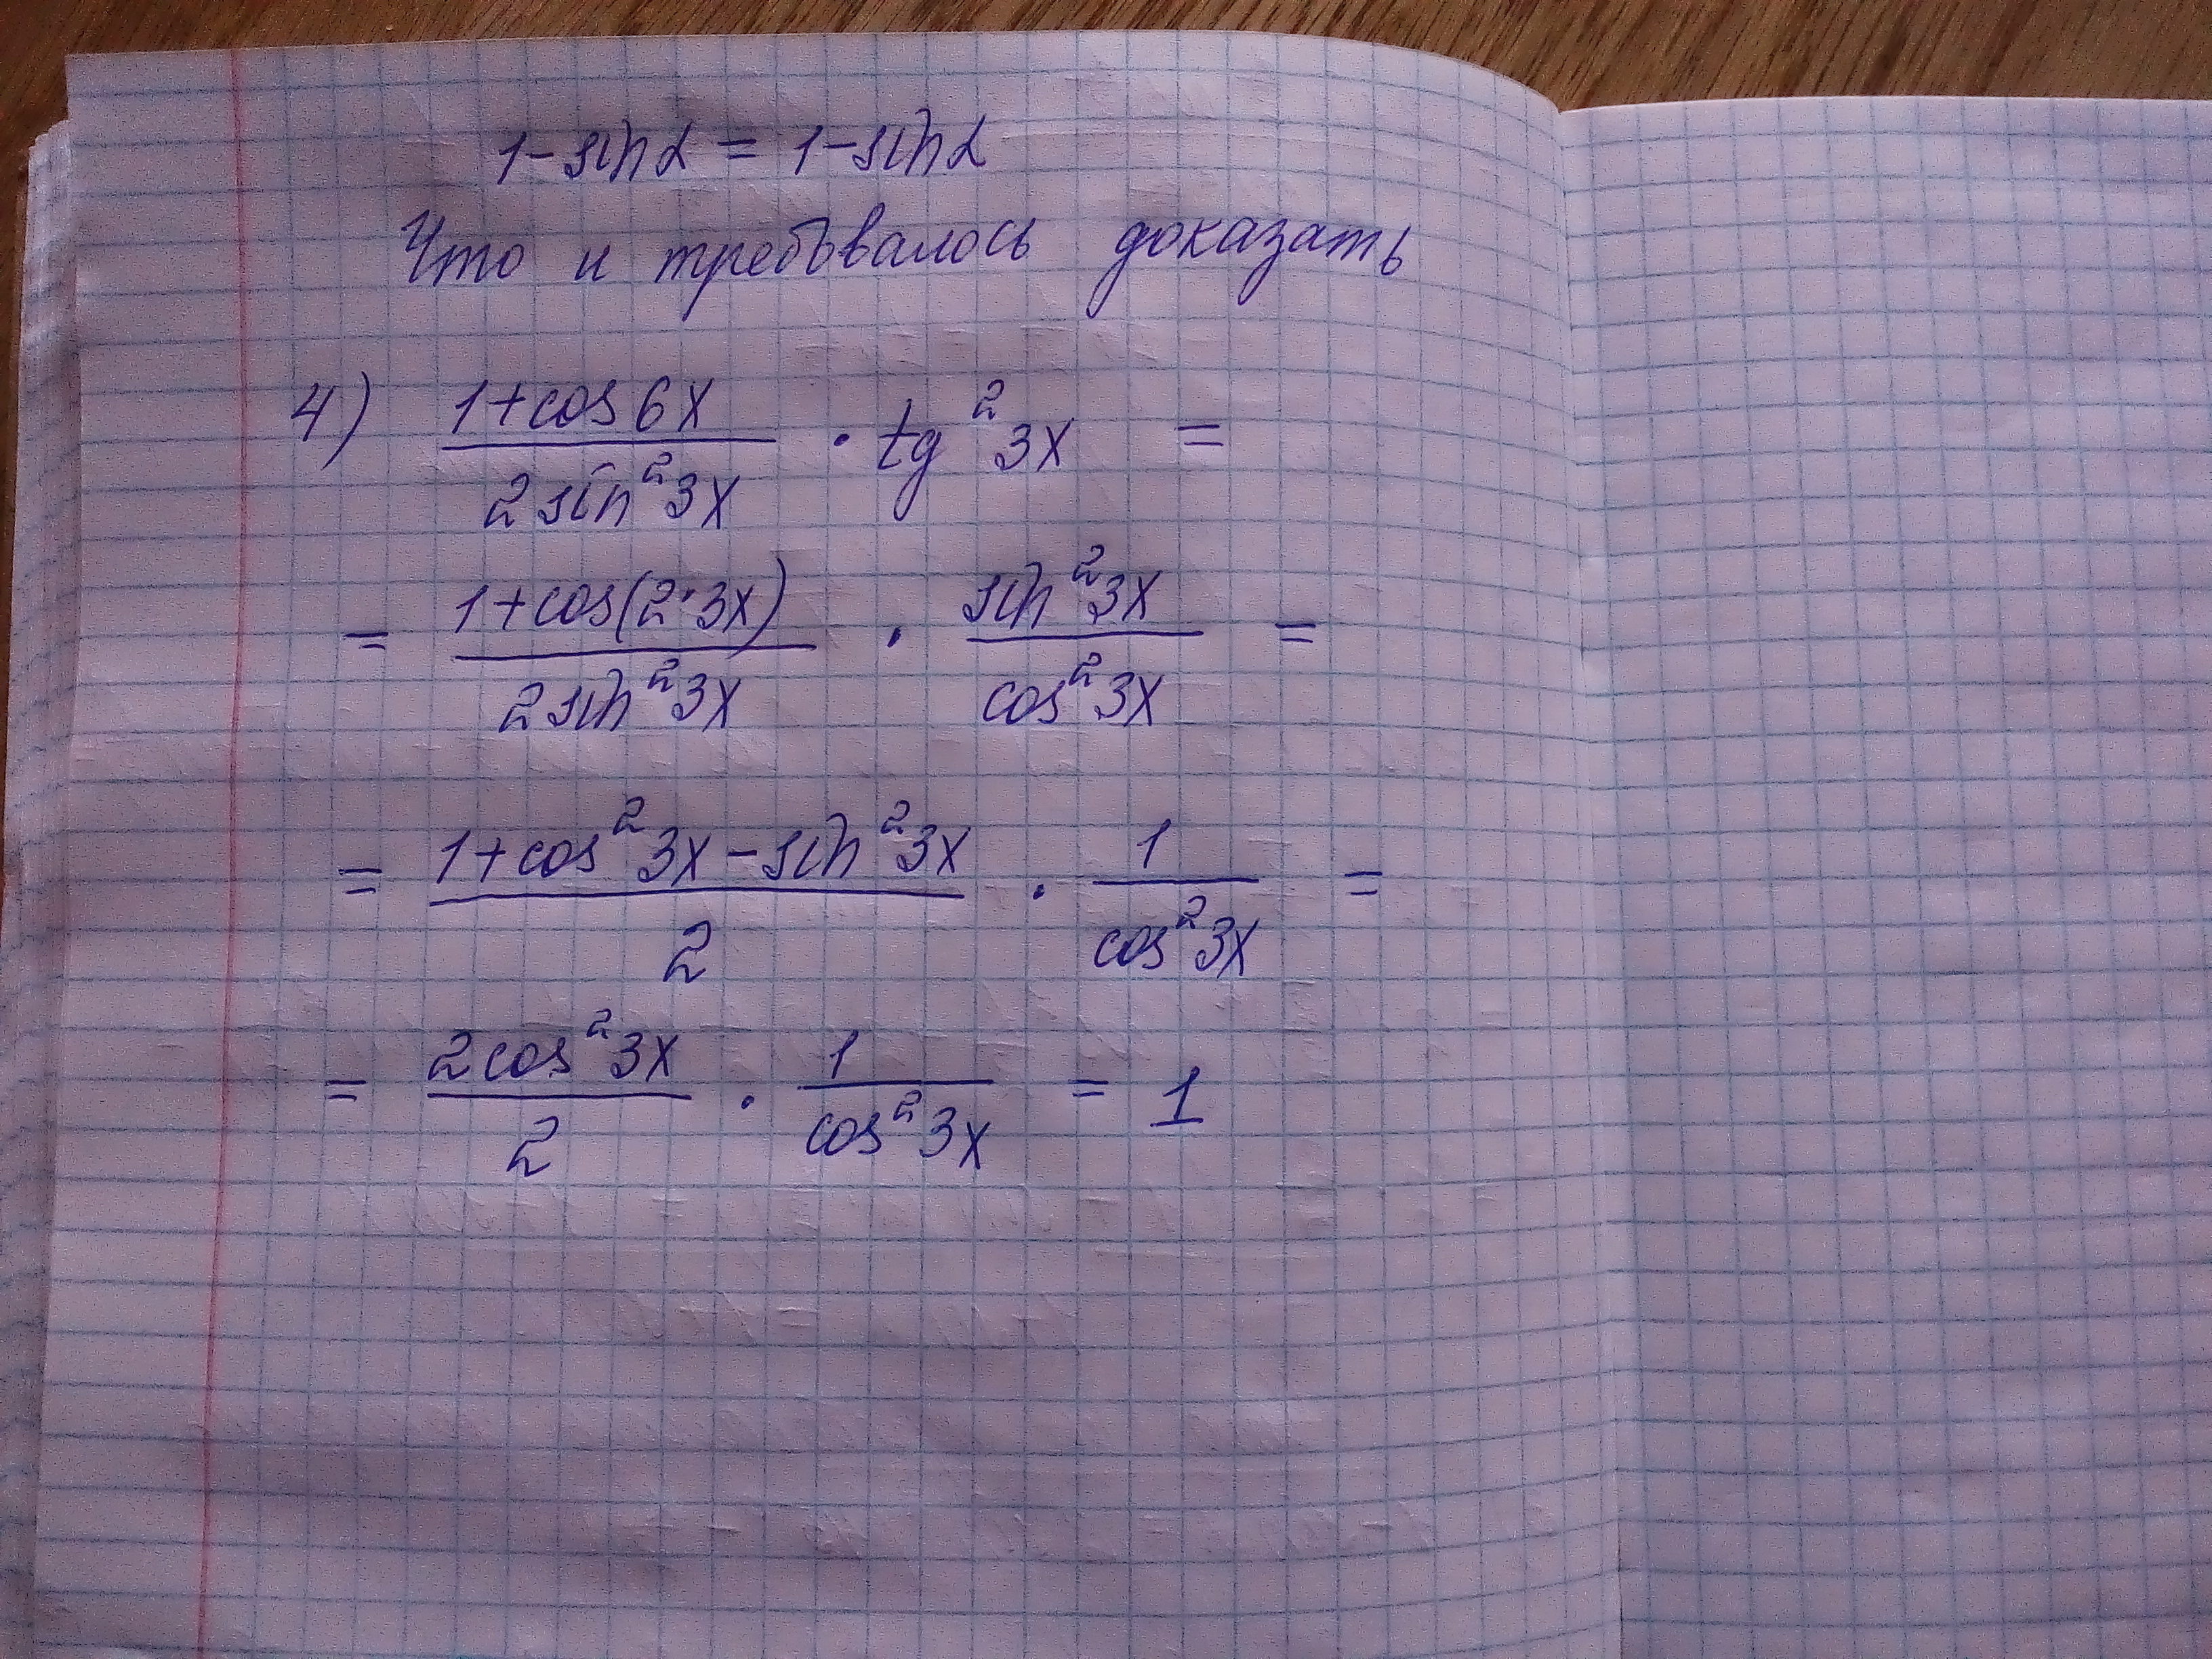 1-sinα = 1-sinα
Что и требовалось доказать
4) (1+cos6x)/(2sin²3x) · tg²3x =
= (1+cos(2·3x))/(2sin²3x) · (sin²3x)/(cos²3x) =
= (1+cos²3x-sin²3x)/2 · 1/(cos²3x) =
= (2cos²3x)/2 · 1/(cos²3x) = 1